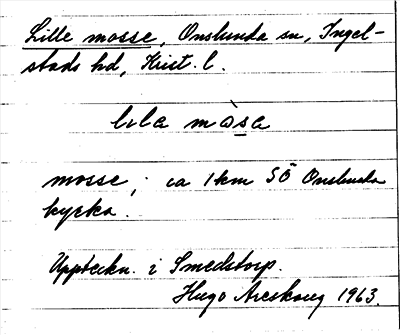 Lille mosse, Onslunda sn, Ingel-
stads hd, Krist. l.
lila màsa
mosse; ca 1 km SÖ Onslunda
kyrka.
Uppteckn. i Smedstorp.
Hugo Areskoug 1963.